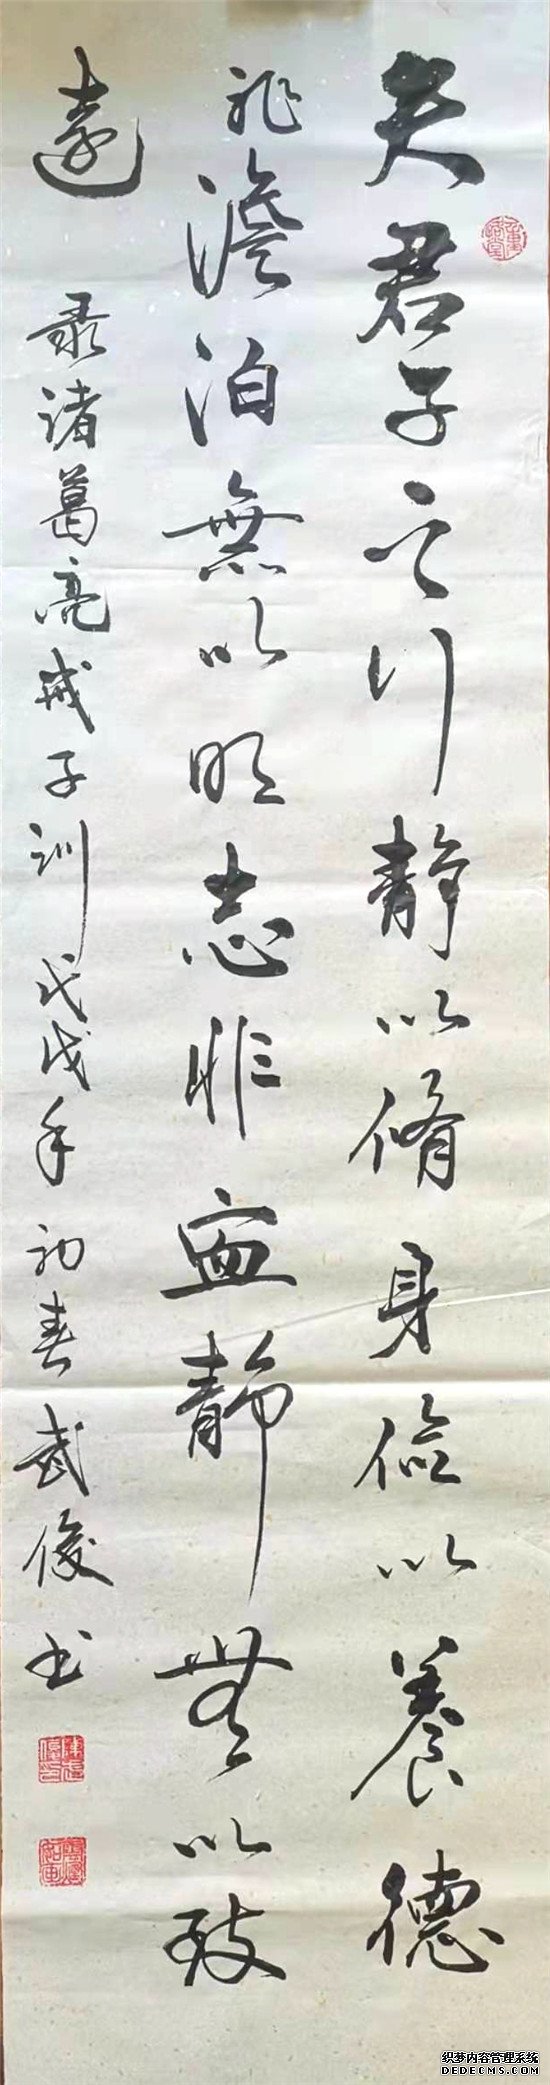 夫君子之行静以脩身儉以養德
非澹泊無以明志非寍静無以致
遠
录诸葛亮戒子训戊戌年初春武俊书
织梦内容管理系统
DEDECMS.COM